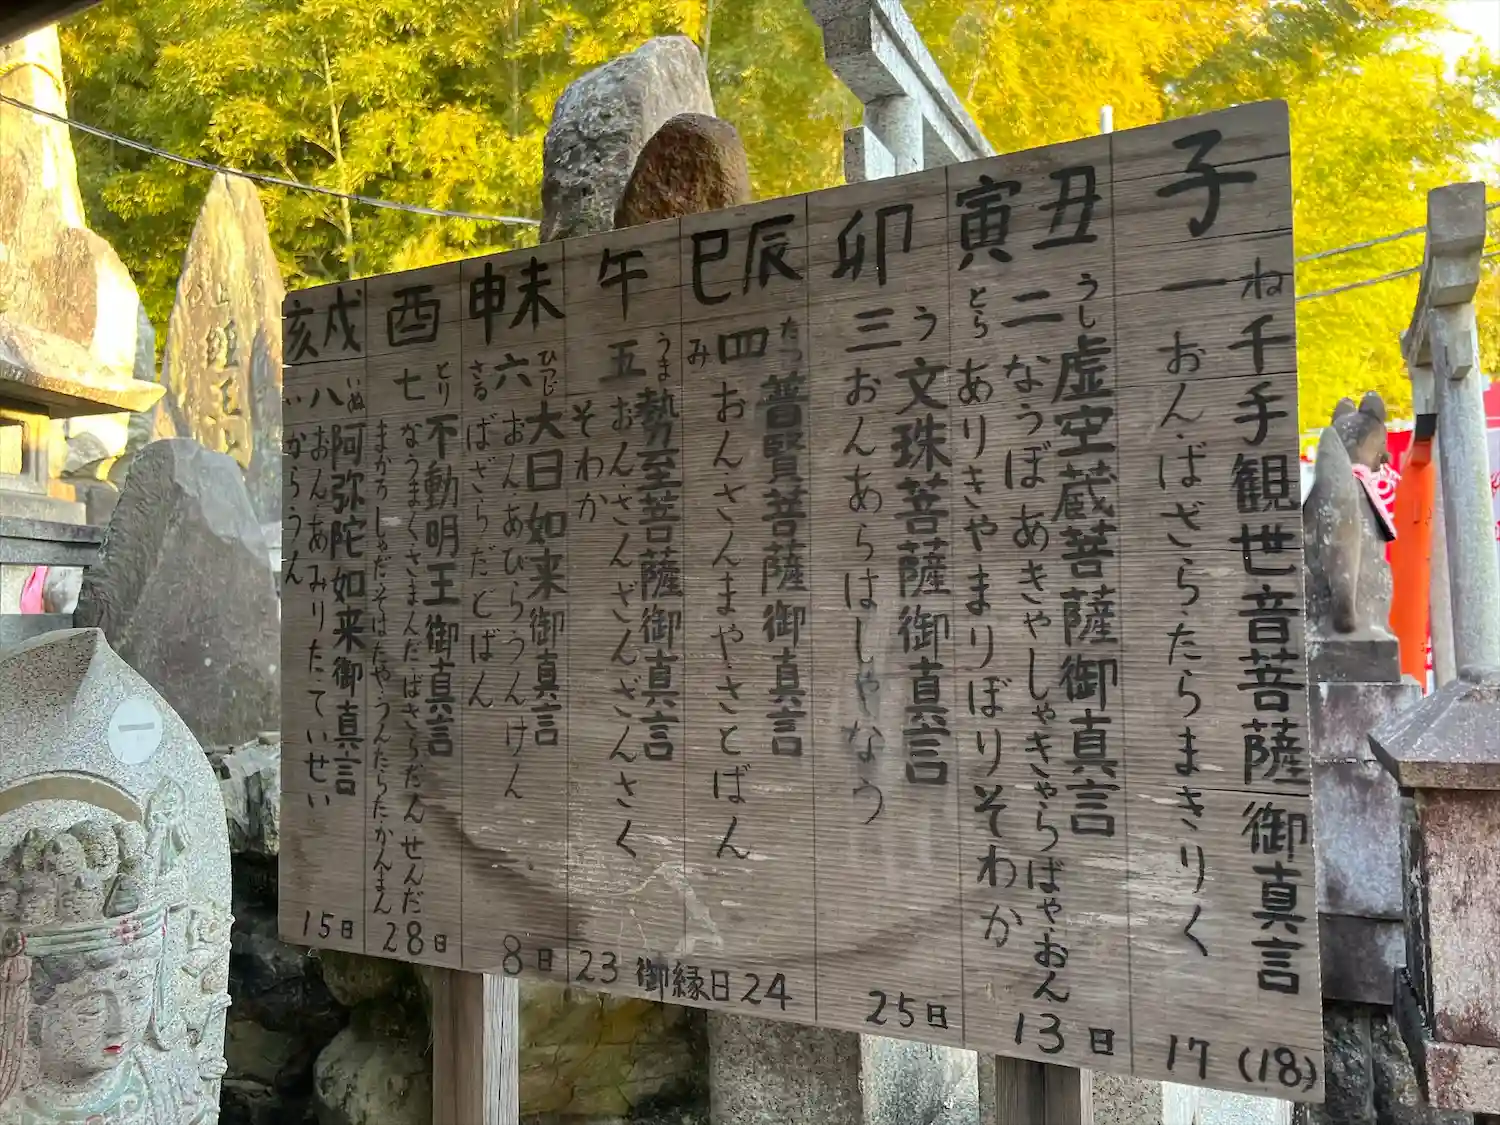 子
ね 千手観世音菩薩御真言
一 おん・ばざら・たらまきりく
17 (18)
丑 寅
うし 虚空蔵菩薩御真言
二 なうぼあきゃしゃきゃらばや・おん
とら ありきやまりぼりそわか
13日
卯
う 文珠菩薩御真言
三 おんあらはしゃなう
25日
辰 巳
たつ 普賢菩薩御真言
四 おんさんまや・さとばん
み
24
午
うま 勢至菩薩御真言
五 おん・さんざんざんさく
そわか
23 御縁日
未 申
ひつじ 大日如来御真言
六 おん・あびらうんけん
さる ばざらだどばん
8日
酉
とり 不動明王御真言
七 なうまくさまんだばさらだん せんだ
まかろしゃだ・そはたや・うんたらたかんまん
28日
戌 亥
いぬ 阿弥陀如来御真言
八 おん・あみりたていせい
い からうん
15日